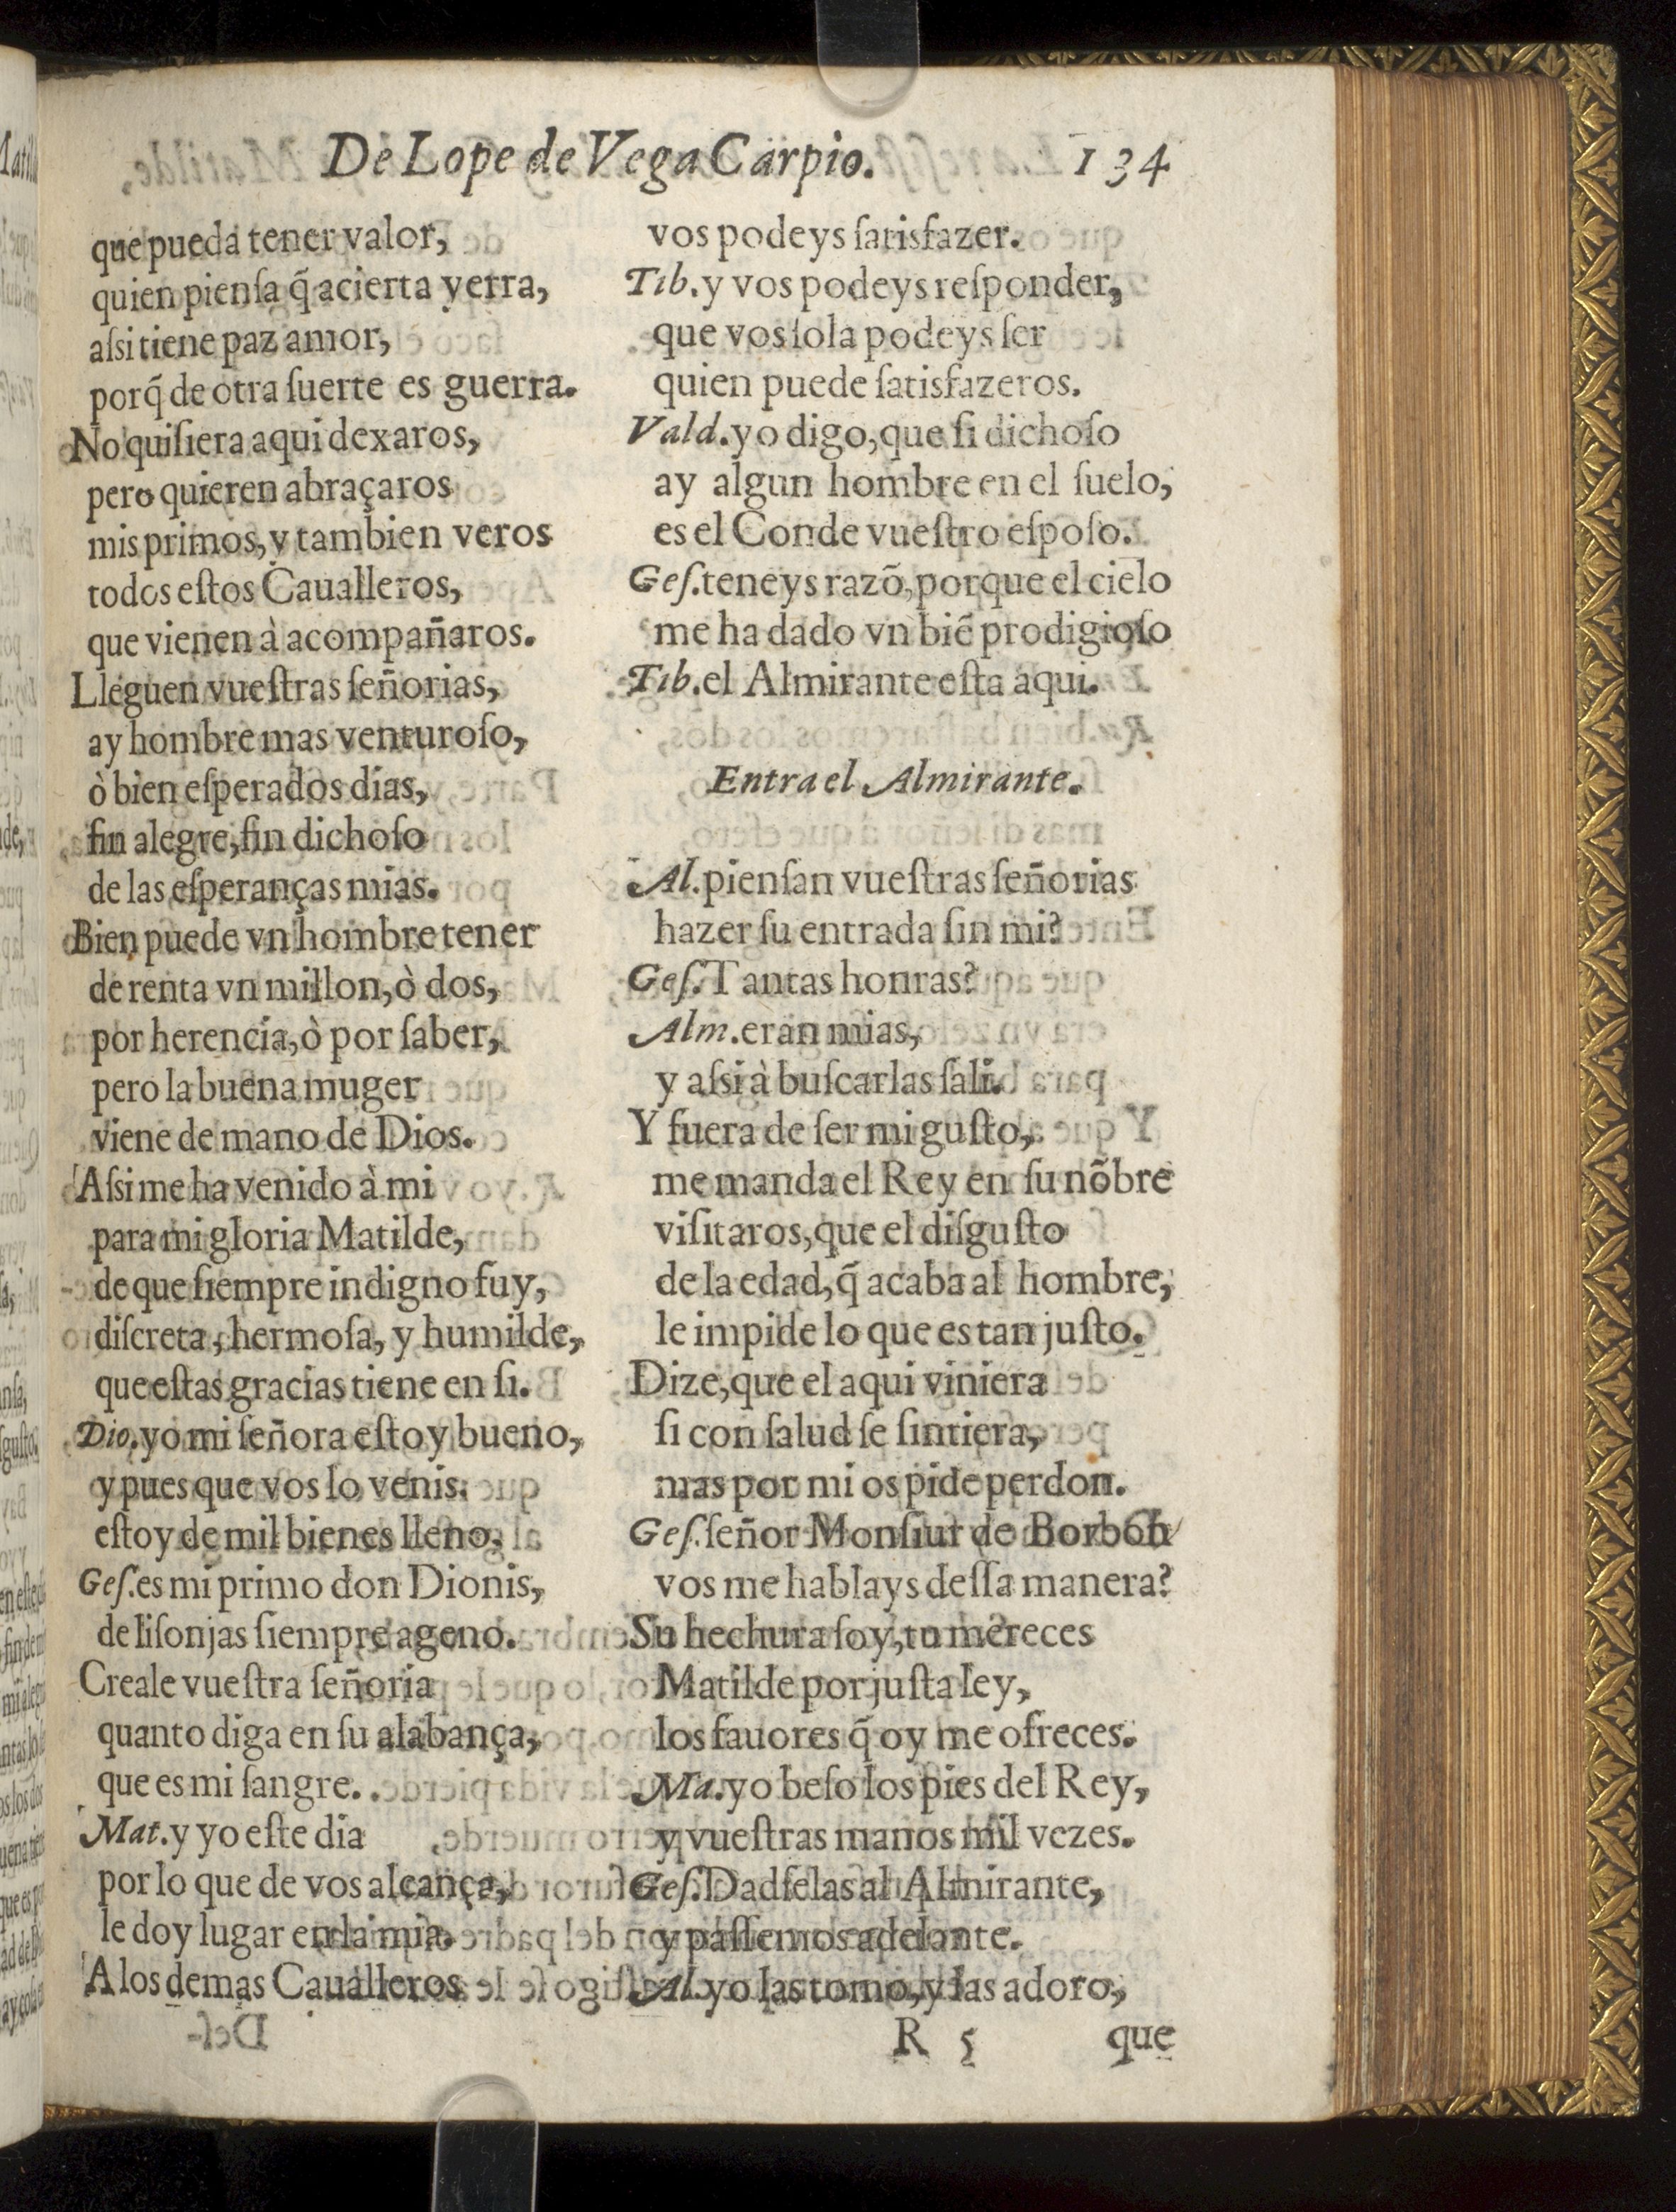 De Lope de Vega Carpio. 134
que pueda tener valor,
quien pienſa q̃ acierta yerra,
aſsi tiene paz amor,
porq̃ de otra ſuerte es guerra.
No quiſiera aqui dexaros,
pero quieren abraçaros
mis primos, y tambien veros
todos eſtos Caualleros,
que vienen à acompañaros.
Lleguen vueſtras ſeñorias,
ay hombre mas venturoſo,
ò bien eſperados dias,
fin alegre, fin dichoſo
de las eſperanças mias.
Bien puede vn hombre tener
de renta vn millon, ò dos,
por herencia, ò por ſaber,
pero la buena muger
viene de mano de Dios.
Aſsi me ha venido à mi
para mi gloria Matilde,
de que ſiempre indigno fuy,
diſcreta, hermoſa, y humilde,
que eſtas gracias tiene en ſi.
Dio. yo mi ſeñora eſtoy bueno,
y pues que vos lo venis.
eſtoy de mil bienes lleno,
Geſ. es mi primo don Dionis,
de liſonjas ſiempre ageno.
Creale vueſtra ſeñoria
quanto diga en ſu alabança,
que es mi ſangre.
Mat. y yo eſte dia
por lo que de vos alcança,
le doy lugar en la mia.
A los demas Caualleros
vos podeys ſatisfazer.
Tib. y vos podeys reſponder,
que vos ſola podeys ſer
quien puede ſatisfazeros.
Vald. yo digo, que ſi dichoſo
ay algun hombre en el ſuelo,
es el Conde vueſtro eſpoſo.
Geſ. teneys razõ, porque el cielo
me ha dado vn biẽ prodigioſo
Tib. el Almirante eſta aqui.
Entra el Almirante.
Al. pienſan vueſtras ſeñorias
hazer ſu entrada ſin mi?
Geſ. Tantas honras?
Alm. eran mias,
y aſsi à buſcarlas ſali.
Y fuera de ſer mi guſto,
me manda el Rey en ſu nõbre
viſitaros, que el diſguſto
de la edad, q̃ acaba al hombre,
le impide lo que es tan juſto.
Dize, que el aqui viniera
ſi con ſalud ſe ſintiera,
mas por mi os pide perdon.
Geſ. ſeñor Monſiur de Borbon
vos me hablays deſſa manera?
Su hechura ſoy, tu mereces
Matilde por juſta ley,
los fauores q̃ oy me ofreces.
Ma. yo beſo los pies del Rey,
y vueſtras manos mil vezes.
Geſ. Dadſelas al Almirante,
y paſſemos adelante.
Al. yo las tomo, y las adoro,
R 5 que